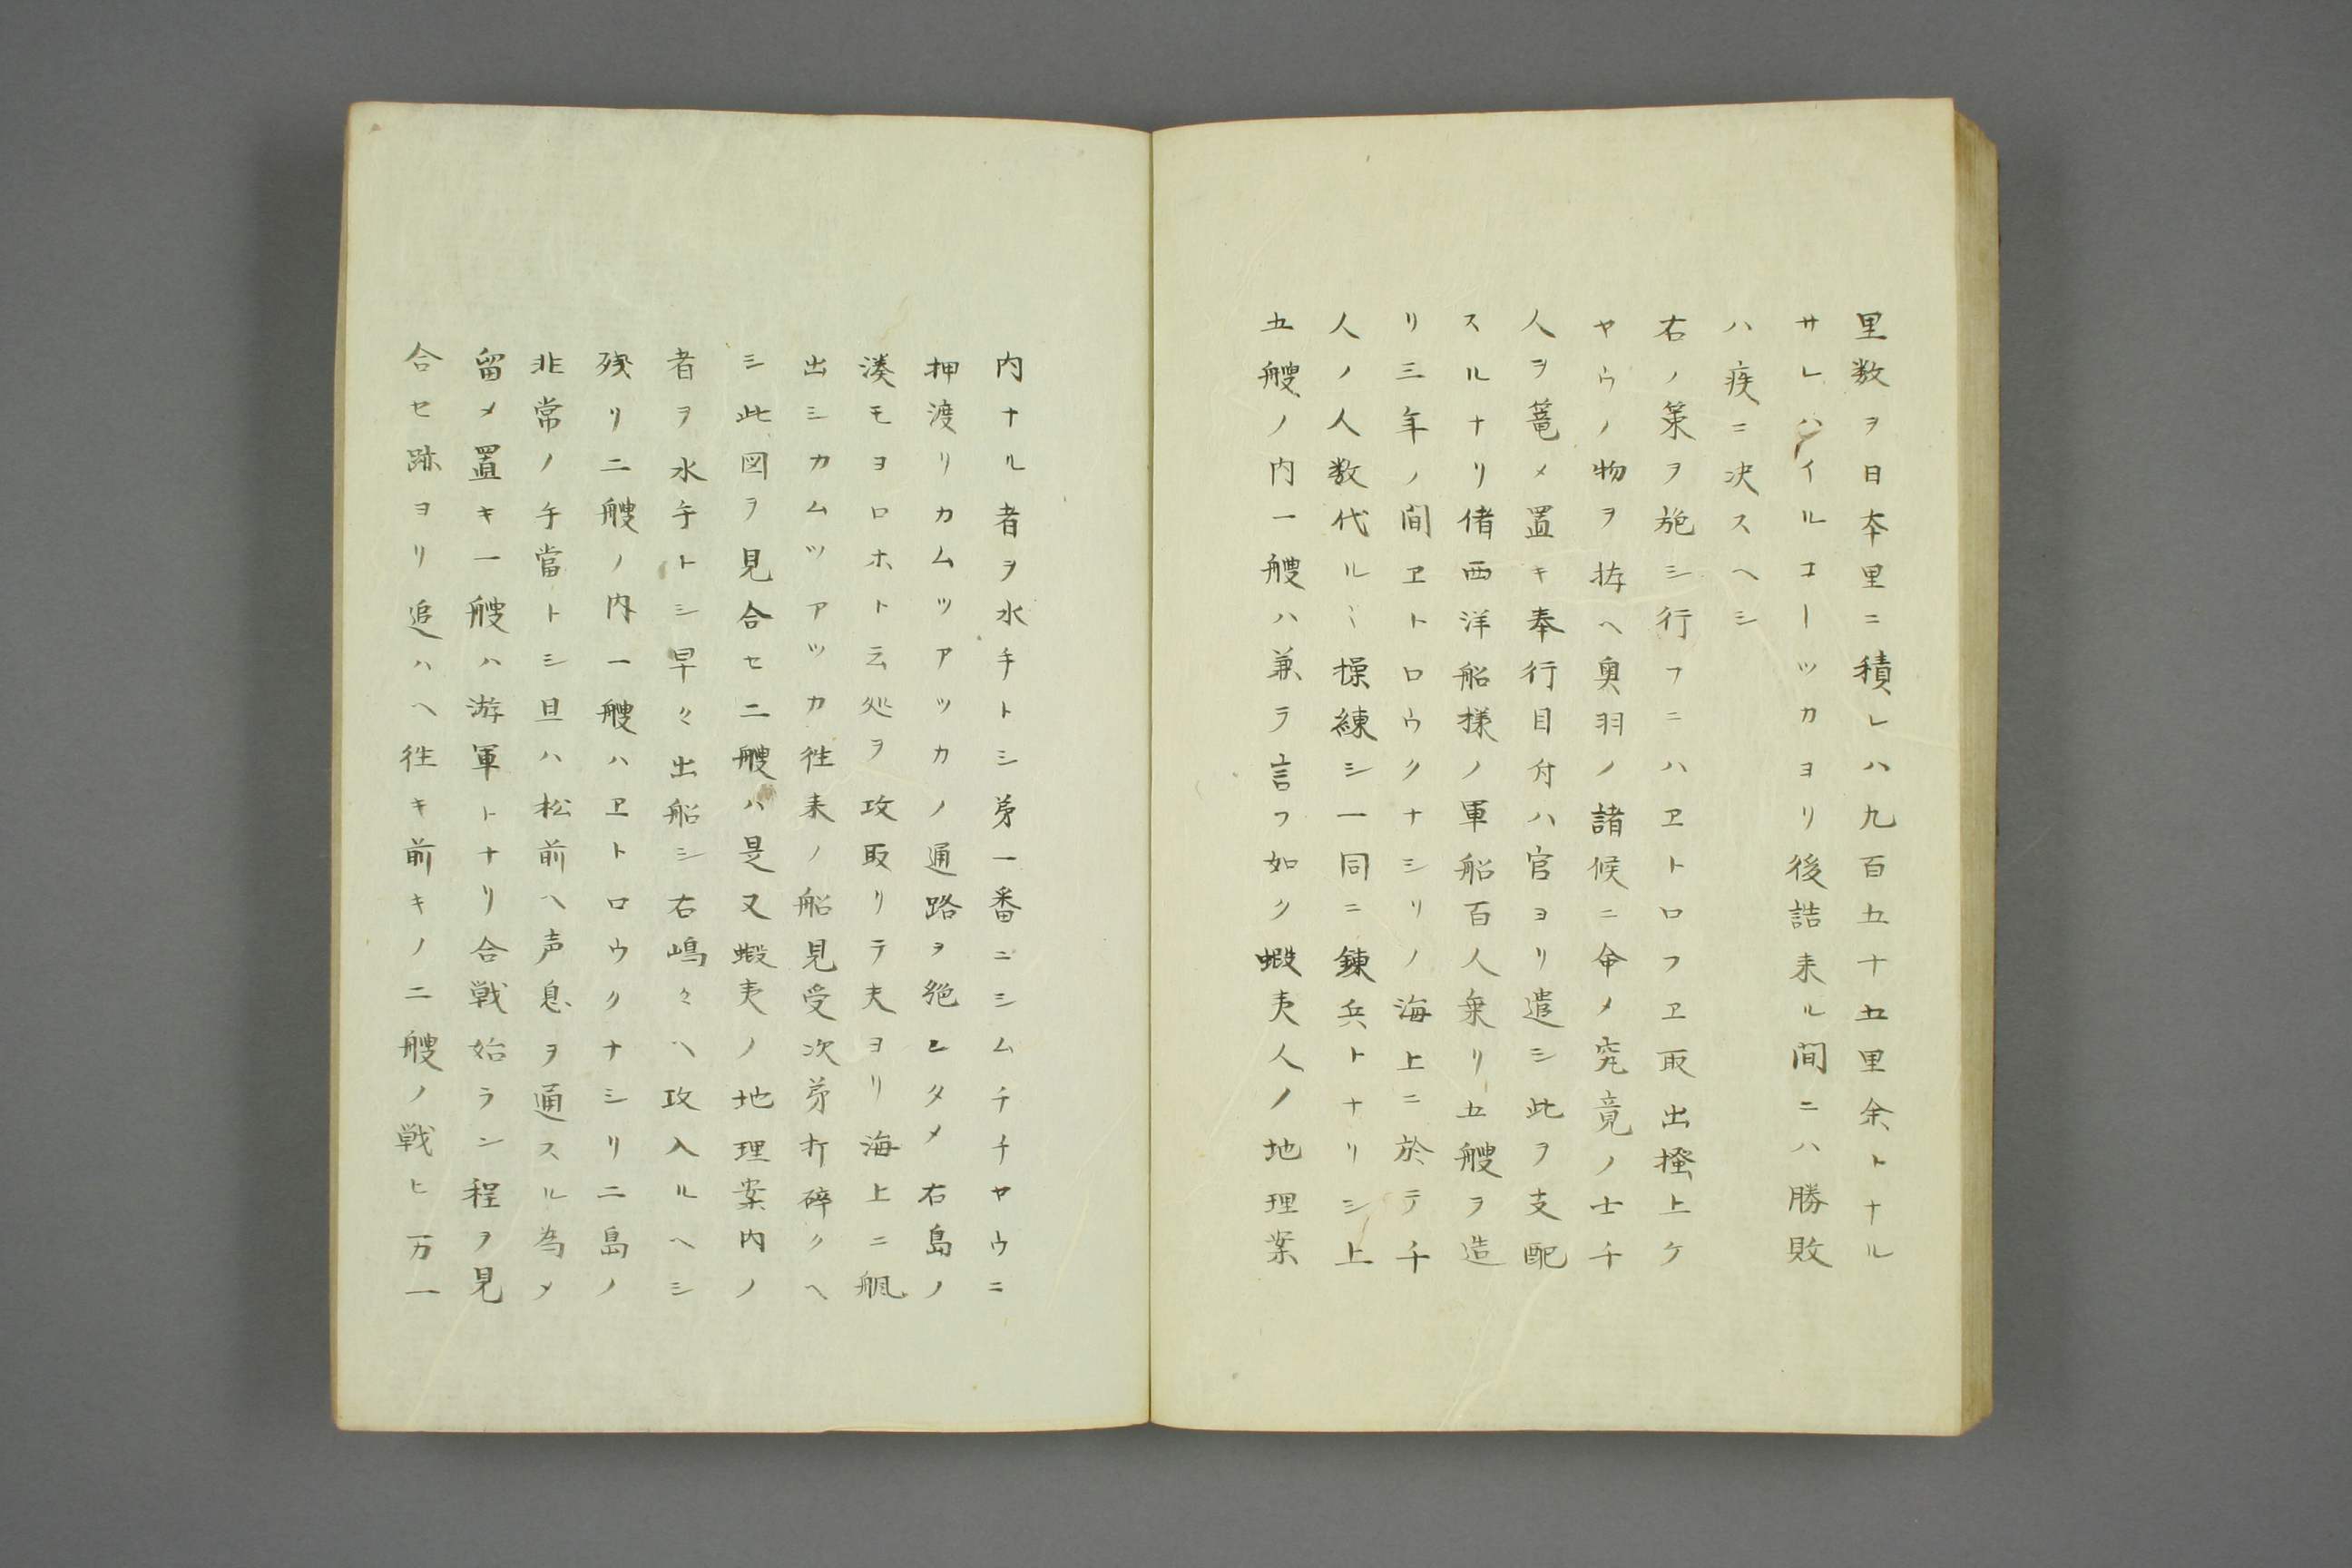 里数ヲ日本里ニ積レハ九百五十五里余トナル
サレハイルコーツカヨリ後詰来ル間ニハ勝敗
ハ疾ニ決スヘシ
右ノ策ヲ施シ行フニハヱトロフヱ取出掻上ケ
ヤウノ物ヲ拵ヘ奥羽ノ諸候ニ命メ究竟ノ士千
人ヲ篭メ置キ奉行目付ハ官ヨリ遣シ此ヲ支配
スルナリ偖西洋船様ノ軍船百人乗リ五艘ヲ造
リ三年ノ間ヱトロウクナシリノ海上ニ於テ千
人ノ人数代ル〻操練シ一同ニ錬兵トナリシ上
五艘ノ内一艘ハ兼ラ言フ如ク蝦夷人ノ地理案
内ナル者ヲ水手トシ第一番ニシムチチヤウニ
押渡リカムツアツカノ通路ヲ絶ンタメ右島ノ
湊モヨロホト云処ヲ攻取リテ夫ヨリ海上ニ颿
出シカムツアツカ往来ノ船見受次第打碎クヘ
シ此図ヲ見合セ二艘ハ是又蝦夷ノ地理案内ノ
者ヲ水手トシ早々出船シ右嶋々ヘ攻入ルヘシ
残リ二艘ノ内一艘ハヱトロウクナシリ二島ノ
非常ノ手當トシ且ハ松前ヘ声息ヲ通スル為メ
留メ置キ一艘ハ游軍トナリ合戦始ラン程ヲ見
合セ跡ヨリ追ハヘ往キ前キノ二艘ノ戦ヒ万一